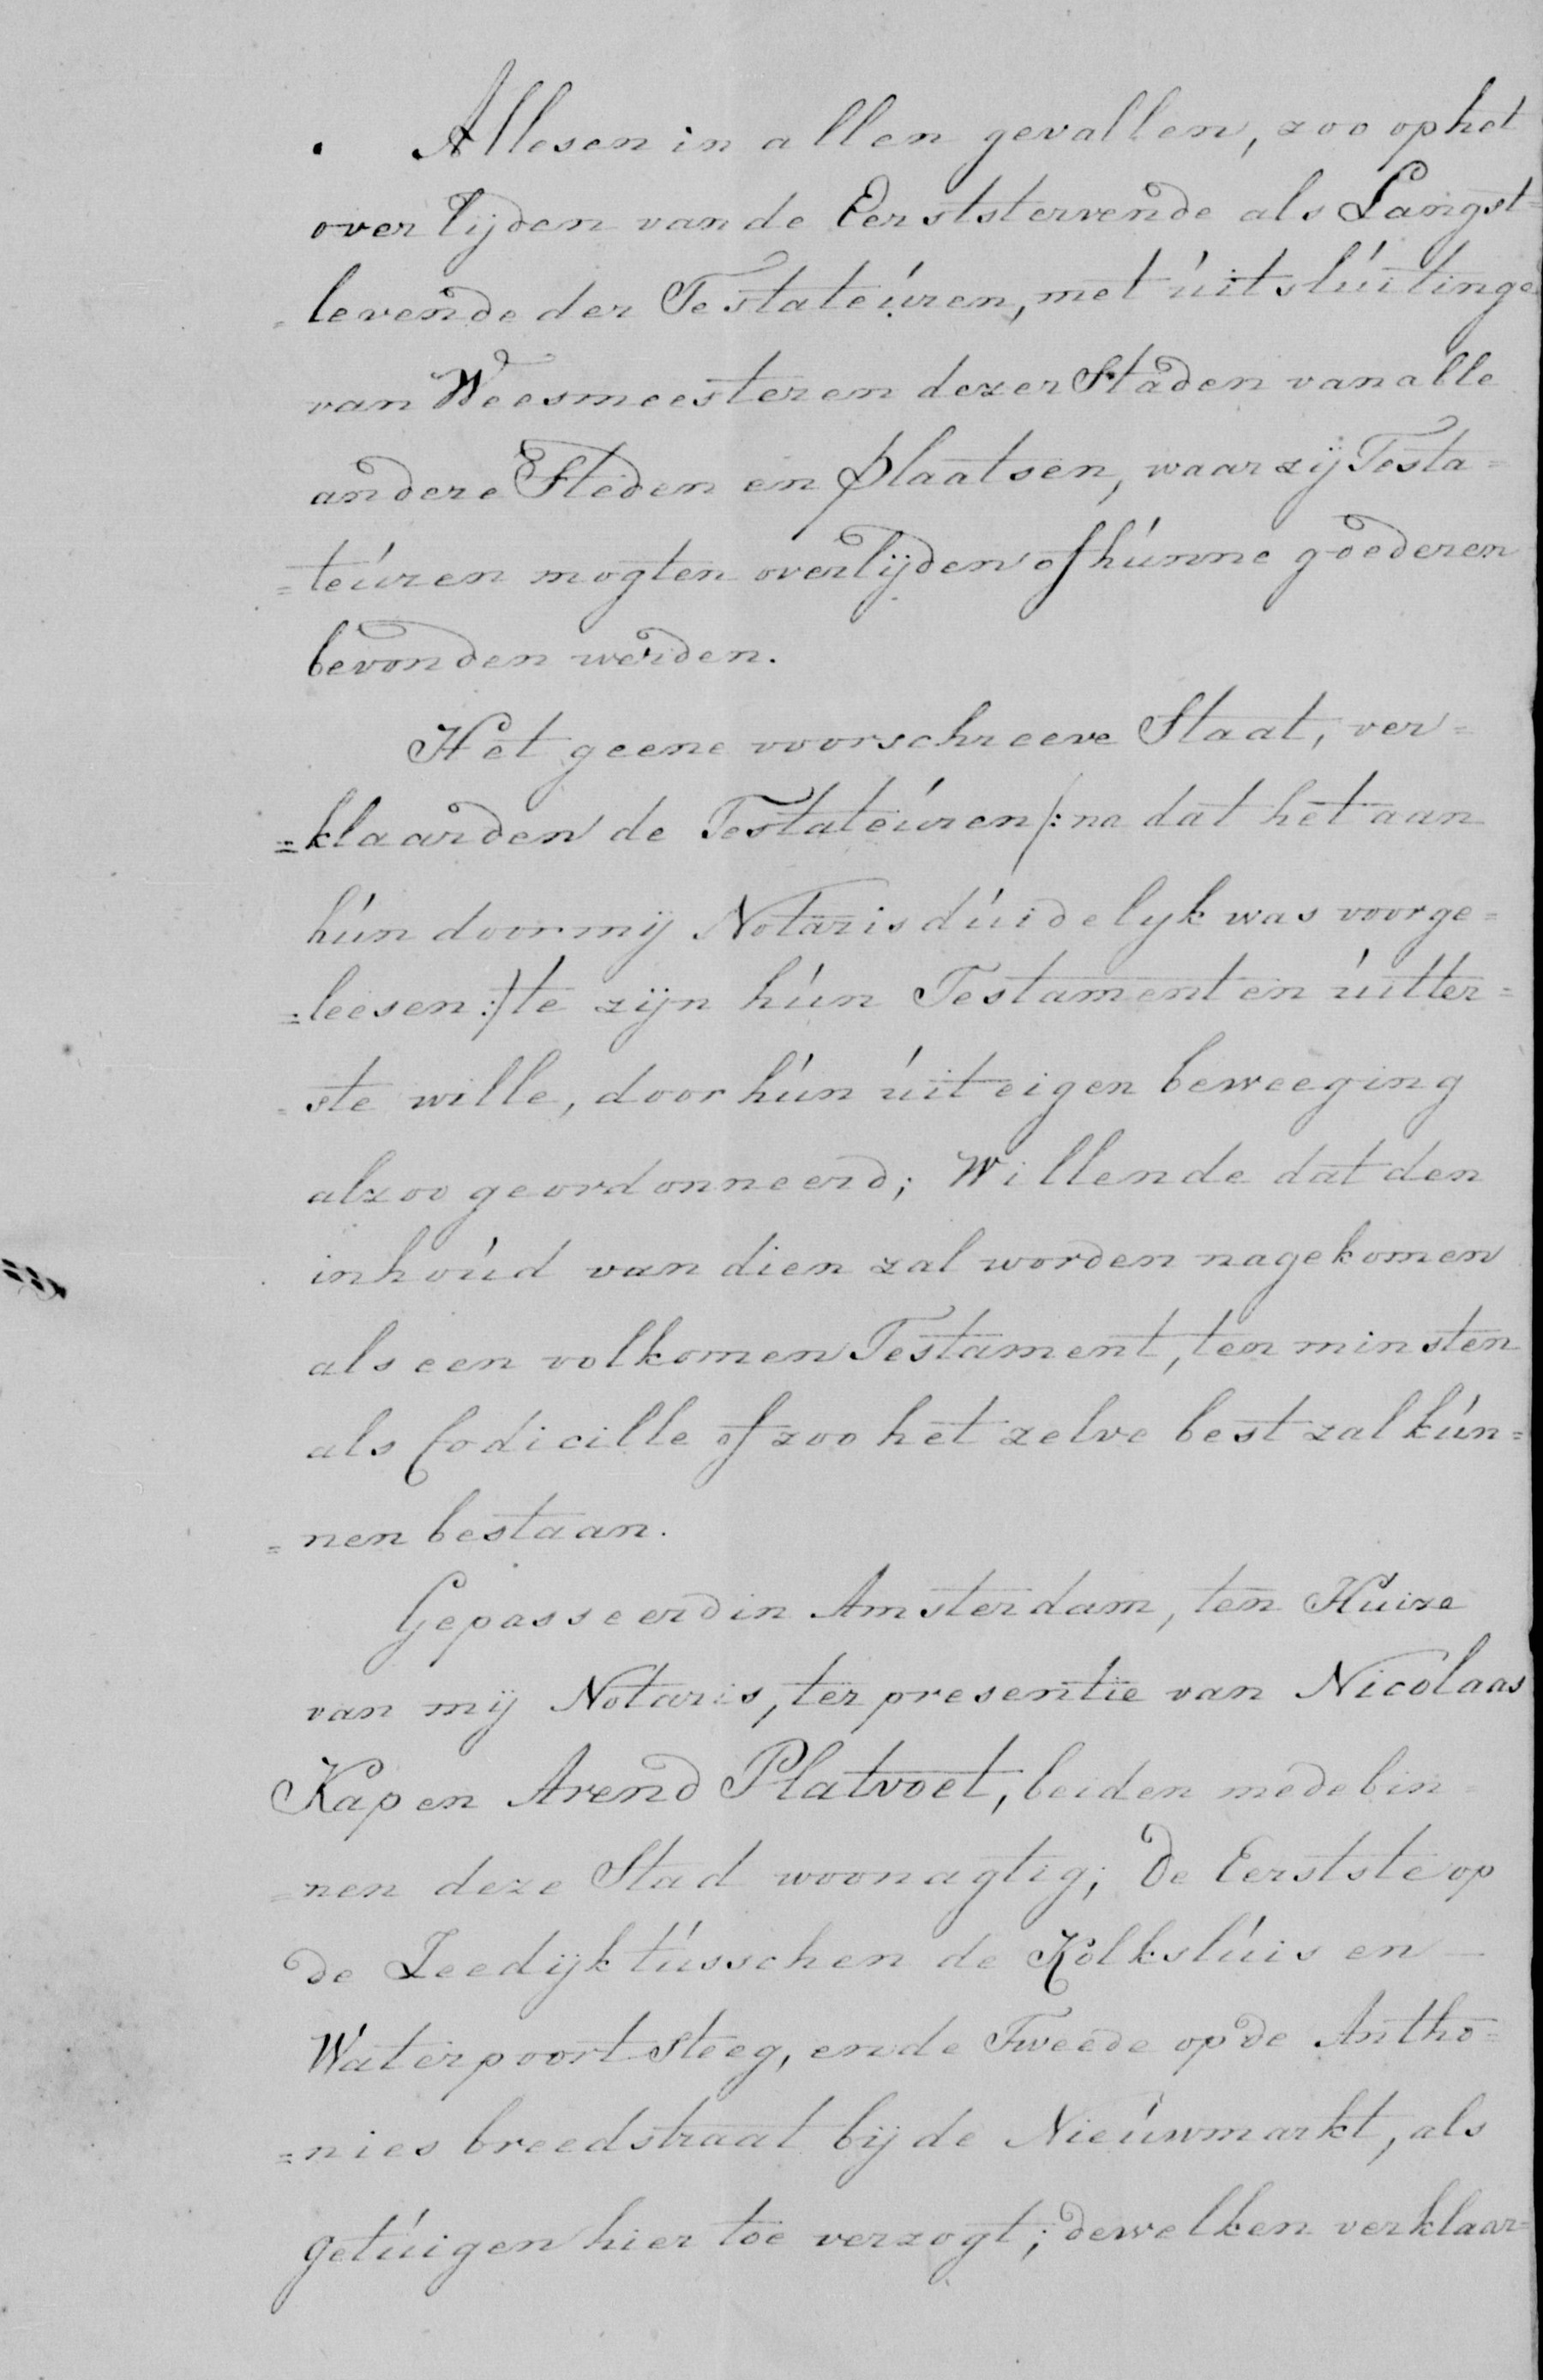 Alles en in allen gevallen, zoo op het
overlijden van de Eerststervende als Langst=
=levende der Testateúren, met úitslúitinge
van Weesmeesteren dezer Stad en van alle
andere Steden en plaatsen, waar zij Testa=
=teúren mogten overlijden of húnne goederen
bevonden werden.
Het geene voorschreeve Staat, ver=
=klaarden de Testateúren /: na dat het aan
hún door mij Notaris dúidelyk was voorge=
=leesen :/ te zijn hún Testament en úitter=
=ste wille, door hún úit eigen beweeging
alzoo geordonneerd; Willende dat den
inhoúd van dien zal worden nagekomen
als een volkomen Testament, ten minsten
als Codicille of zoo het zelve best zal kún=
=nen bestaan.
Gepasseerd in Amsterdam, ten Huize
van mij Notaris, ter presentie van Nicolaas
Kap en Arend Platvoet, beiden mede bin=
=nen deze Stad woonagtig; De Eerstste op
de Zeedijk tússchen de Kolkslúis en
Waterpoort Steeg, en de Tweede op de Antho=
=nies breedstraat bij de Nieúwmarkt, als
getúigen hier toe verzogt; dewelken verklaar=